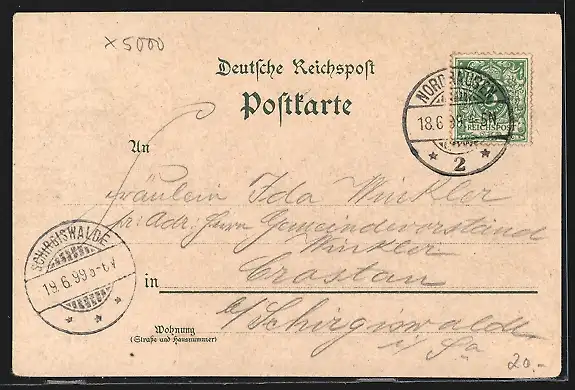 x 5000
Deutsche Reichspost
Postkarte
NORDHAUSEN
18.6.99. 4-5N
* 2 *
REICHSPOST
An
Fräulein Ida Winkler
pr: Adr: Herrn Gemeindevorstand
Winkler
SCHIRGISWALDE
19.6.99.
* * *
in Crostau
b/ Schirgiswalde
i/ Sa
Wohnung
(Straße und Hausnummer)
20.-